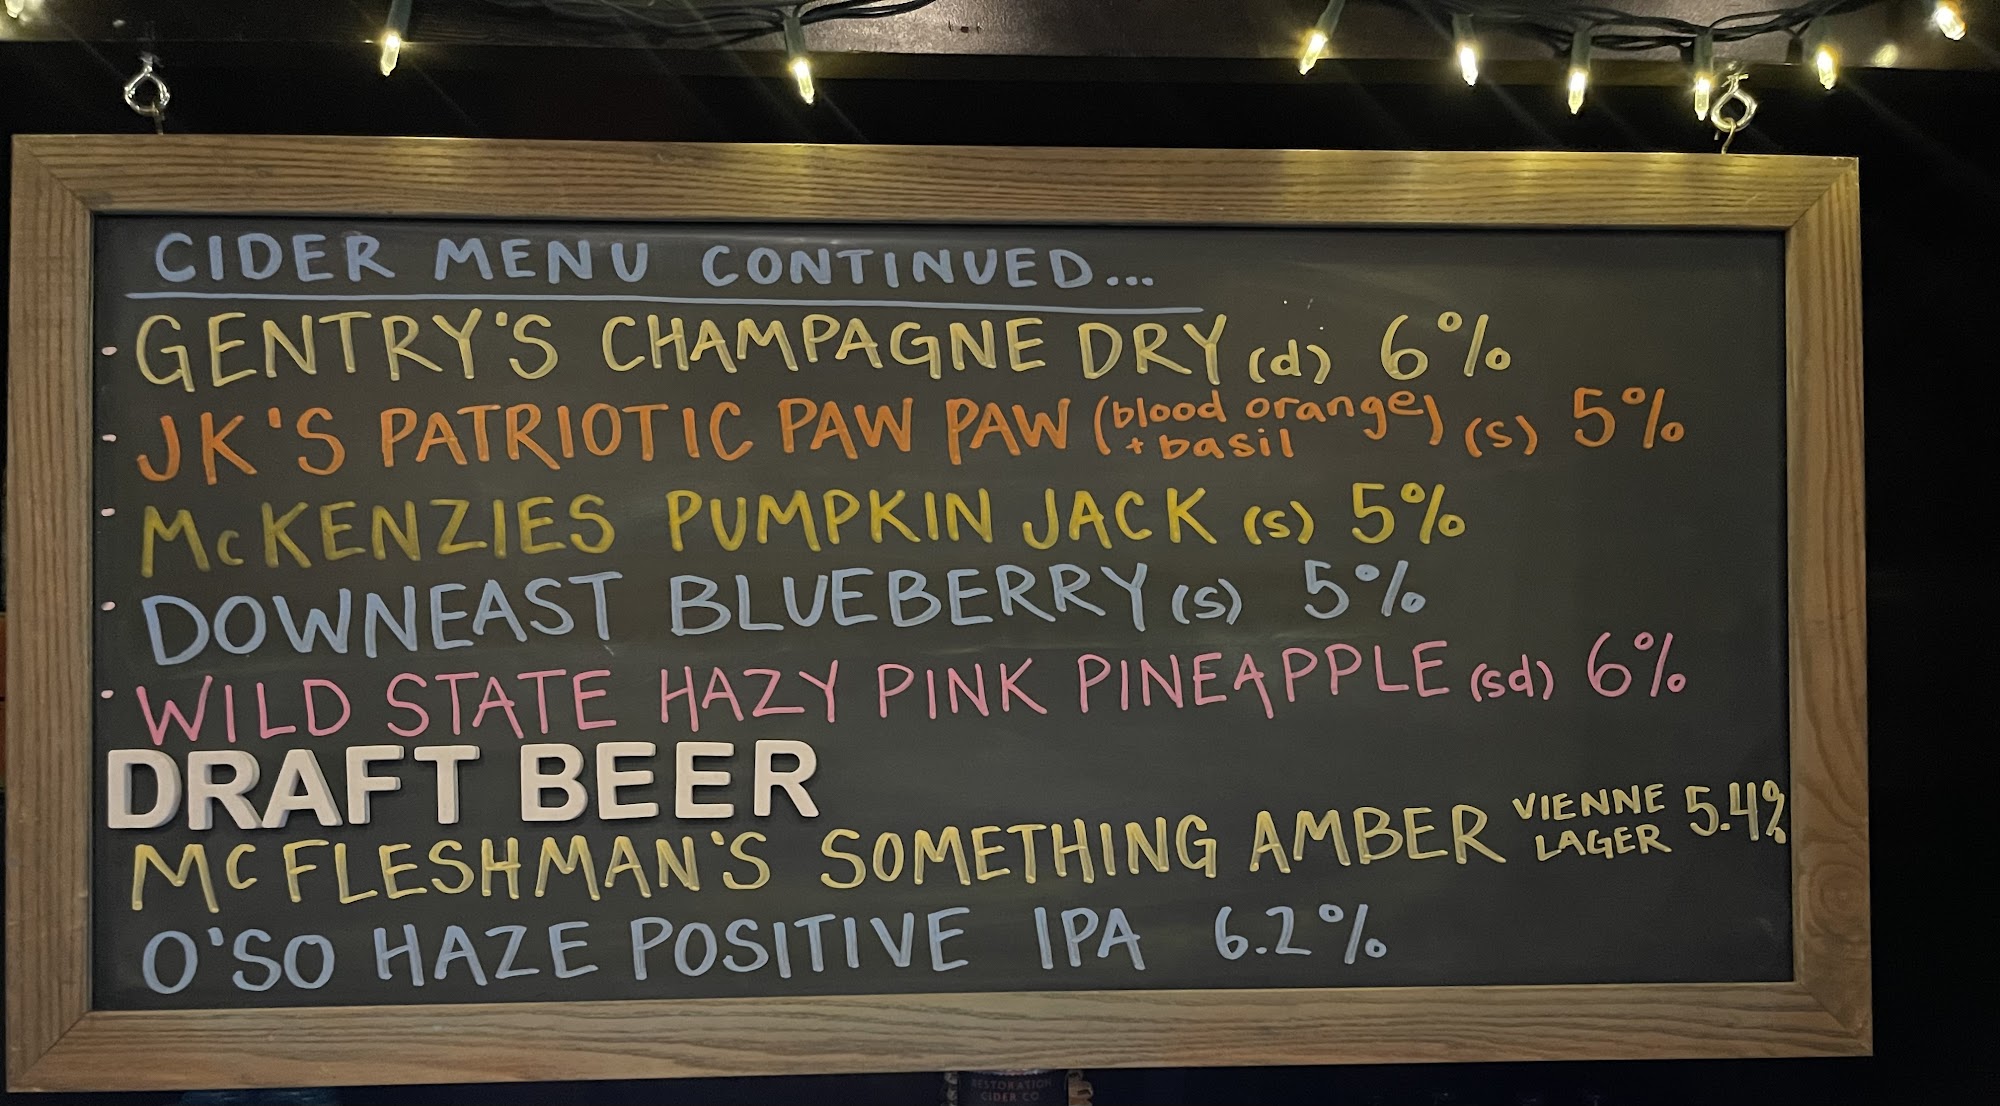 CIDER MENU CONTINUED...
· GENTRY'S CHAMPAGNE DRY (d) 6%
· JK'S PATRIOTIC PAW PAW (blood orange + basil) (s) 5%
· McKENZIES PUMPKIN JACK (s) 5%
· DOWNEAST BLUEBERRY (s) 5%
· WILD STATE HAZY PINK PINEAPPLE (sd) 6%
DRAFT BEER
MCFLESHMAN'S SOMETHING AMBER VIENNE LAGER 5.4%
O'SO HAZE POSITIVE IPA 6.2%
RESTORATION
CIDER CO